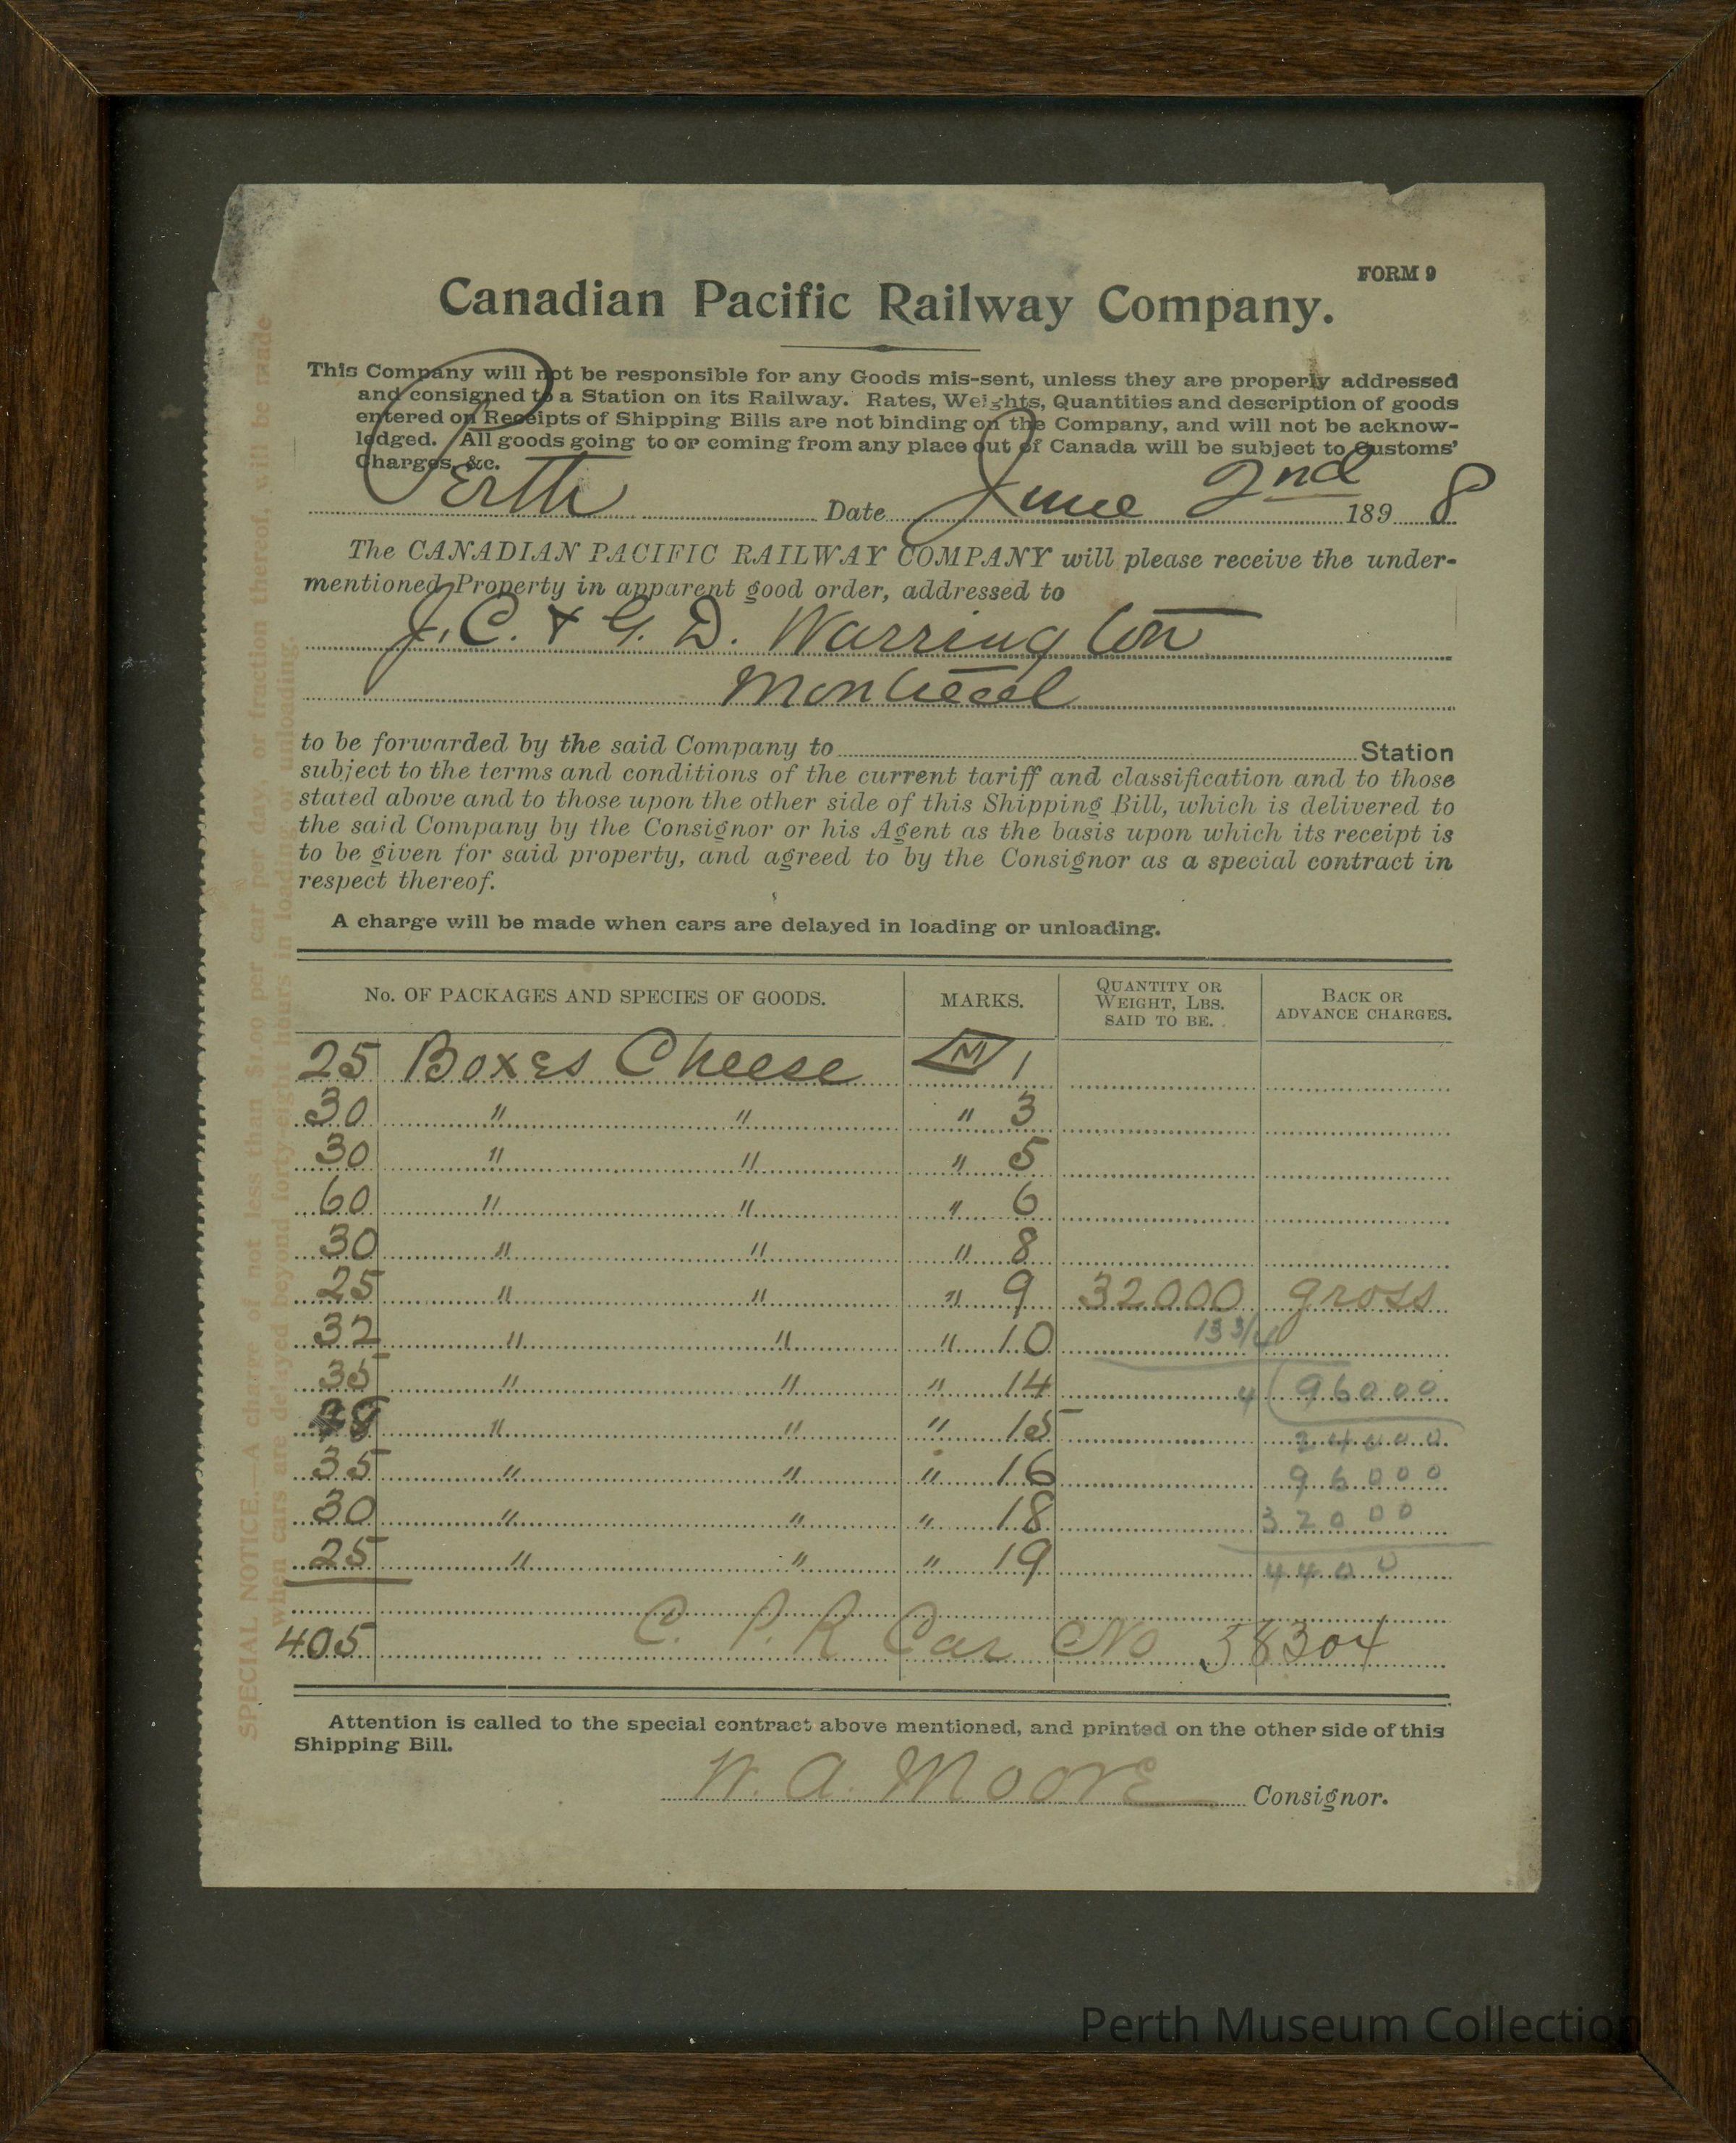 FORM 9
Canadian Pacific Railway Company.
This Company will not be responsible for any Goods mis-sent, unless they are properly addressed
and consigned to a Station on its Railway. Rates, Weights, Quantities and description of goods
entered on Receipts of Shipping Bills are not binding on the Company, and will not be acknow-
ledged. All goods going to or coming from any place out of Canada will be subject to Customs'
Charges, &c.
Perth Date June 2nd 1898
The CANADIAN PACIFIC RAILWAY COMPANY will please receive the under-
mentioned Property in apparent good order, addressed to
J. C. & G. D. Warrington
Montreal
to be forwarded by the said Company to Station
subject to the terms and conditions of the current tariff and classification and to those
stated above and to those upon the other side of this Shipping Bill, which is delivered to
the said Company by the Consignor or his Agent as the basis upon which its receipt is
to be given for said property, and agreed to by the Consignor as a special contract in
respect thereof.
A charge will be made when cars are delayed in loading or unloading.
No. OF PACKAGES AND SPECIES OF GOODS. MARKS. QUANTITY OR WEIGHT, LBS. SAID TO BE. BACK OR ADVANCE CHARGES.
25 Boxes Cheese M 1
30 " " " 3
30 " " " 5
60 " " " 6
30 " " " 8
25 " " " 9 32000 gross
32 " " " 10 13 3/4
35 " " " 14 4 ( 96000
48 " " " 15 24000
35 " " " 16 96000
30 " " " 18 32000
25 " " " 19 4400
405 C. P. R Car No 58304
Attention is called to the special contract above mentioned, and printed on the other side of this
Shipping Bill.
W. A. Moore Consignor.
SPECIAL NOTICE.—A charge of not less than per car per day, or fraction thereof, will be made
when cars are delayed beyond forty-eight hours in loading or unloading.
Perth Museum Collection